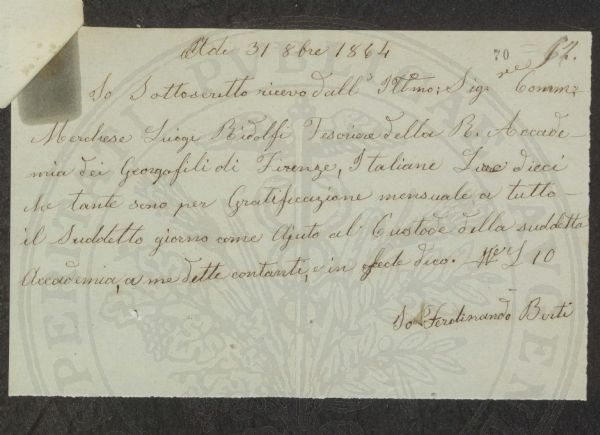 Adi 31 8bre 1864
70 = 62.
Io Sottoscritto ricevo dall' Illmo: Sigre Comm:
Marchese Luigi Ridolfi Tesoriere della R. Accade-
mia dei Georgofili di Firenze, Italiane Lire dieci
che tante sono per Gratificazione mensuale a tutto
il Suddetto giorno come Ajuto al Custode della suddetta
Accademia, a me dette contanti, e in fede dico. L 10
Io Ferdinando Berti